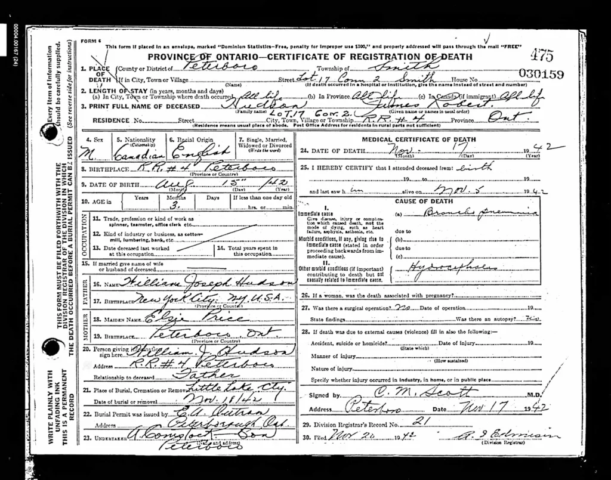 FORM 6
This form if placed in an envelope, marked "Dominion Statistics—Free, penalty for improper use $300," and properly addressed will pass through the mail "FREE"
PROVINCE OF ONTARIO—CERTIFICATE OF REGISTRATION OF DEATH
475
030159
1. PLACE OF DEATH
County or District of Peterboro Township of Smith
If in City, Town or Village Street Lot 17 Conn 2 Smith House No.
(If death occurred in a hospital or institution, give the name instead of street and number)
2. LENGTH OF STAY (in years, months and days)
(a) In City, Town or Township where death occurred All Life (b) In Province All Life (c) In Canada (if immigrant) All Life
3. PRINT FULL NAME OF DECEASED Hudson James Robert
RESIDENCE No. Lot 17 Con. 2 R.R. #4 Province Ont
(Residence means usual place of abode. Post Office Address for residents in rural parts not sufficient)
4. Sex M
5. Nationality (Citizenship) Canadian
6. Racial Origin English
7. Single, Married, Widowed or Divorced (Write the word)
8. BIRTHPLACE R.R. #4 Peterboro
(Province or Country)
9. DATE OF BIRTH Aug. 15 /42
10. AGE in Years Months 3 Days If less than one day old hrs. or min.
OCCUPATION
11. Trade, profession or kind of work as spinner, teamster, office clerk, etc.
12. Kind of industry or business, as cotton-mill, lumbering, bank, etc.
13. Date deceased last worked at this occupation
14. Total years spent in this occupation
15. If married give name of wife or husband of deceased
FATHER
16. Name William Joseph Hudson
17. Birthplace New York City. N.Y. U.S.A.
(Province or Country)
MOTHER
18. Maiden Name Elsie Price
19. Birthplace Peterboro Ont
(Province or Country)
20. Person giving information sign here William J. Hudson
Address R.R. #4 Peterboro
Relationship to deceased Father
21. Place of Burial, Cremation or Removal Little Lake, Cty.
Date of burial or removal Nov. 18/42
22. Burial Permit was issued by
Address Peterborough Ont.
23. UNDERTAKER A Comstock Son
Peterboro
(Name and address)
MEDICAL CERTIFICATE OF DEATH
24. DATE OF DEATH Nov. 17 1942
25. I HEREBY CERTIFY that I attended deceased from: birth
19 to 19
and last saw him alive on Nov. 5 1942
CAUSE OF DEATH
I. Immediate cause
Give disease, injury or complication which caused death, not the mode of dying, such as heart failure, asphyxia, asthenia, etc.
(a) Broncho pneumonia
due to
Morbid conditions, if any, giving rise to immediate cause (stated in order proceeding backwards from immediate cause).
(b)
due to
(c)
II. Other morbid conditions (if important) contributing to death but not causally related to immediate cause.
Hydrocephalus
26. If a woman, was the death associated with pregnancy?
27. Was there a surgical operation? No Date of operation 19
State findings Was there an autopsy? No
28. If death was due to external causes (violence) fill in also the following:
Accident, suicide or homicide? Date of injury 19
(State which)
Manner of injury
(How sustained)
Nature of injury
Specify whether injury occurred in industry, in home, or in public place
Signed by C. M. Scott M.D.
Address Peterboro Date Nov 17 1942
29. Division Registrar's Record No. 21
30. Filed Nov 20 1942
(Division Registrar)
WRITE PLAINLY WITH UNFADING INK THIS IS A PERMANENT RECORD
THIS FORM MUST BE FILED FORTHWITH WITH THE DIVISION REGISTRAR OF THE DIVISION IN WHICH THE DEATH OCCURRED BEFORE A BURIAL PERMIT CAN BE ISSUED
Every Item of Information should be carefully supplied.
(See reverse side for instructions)